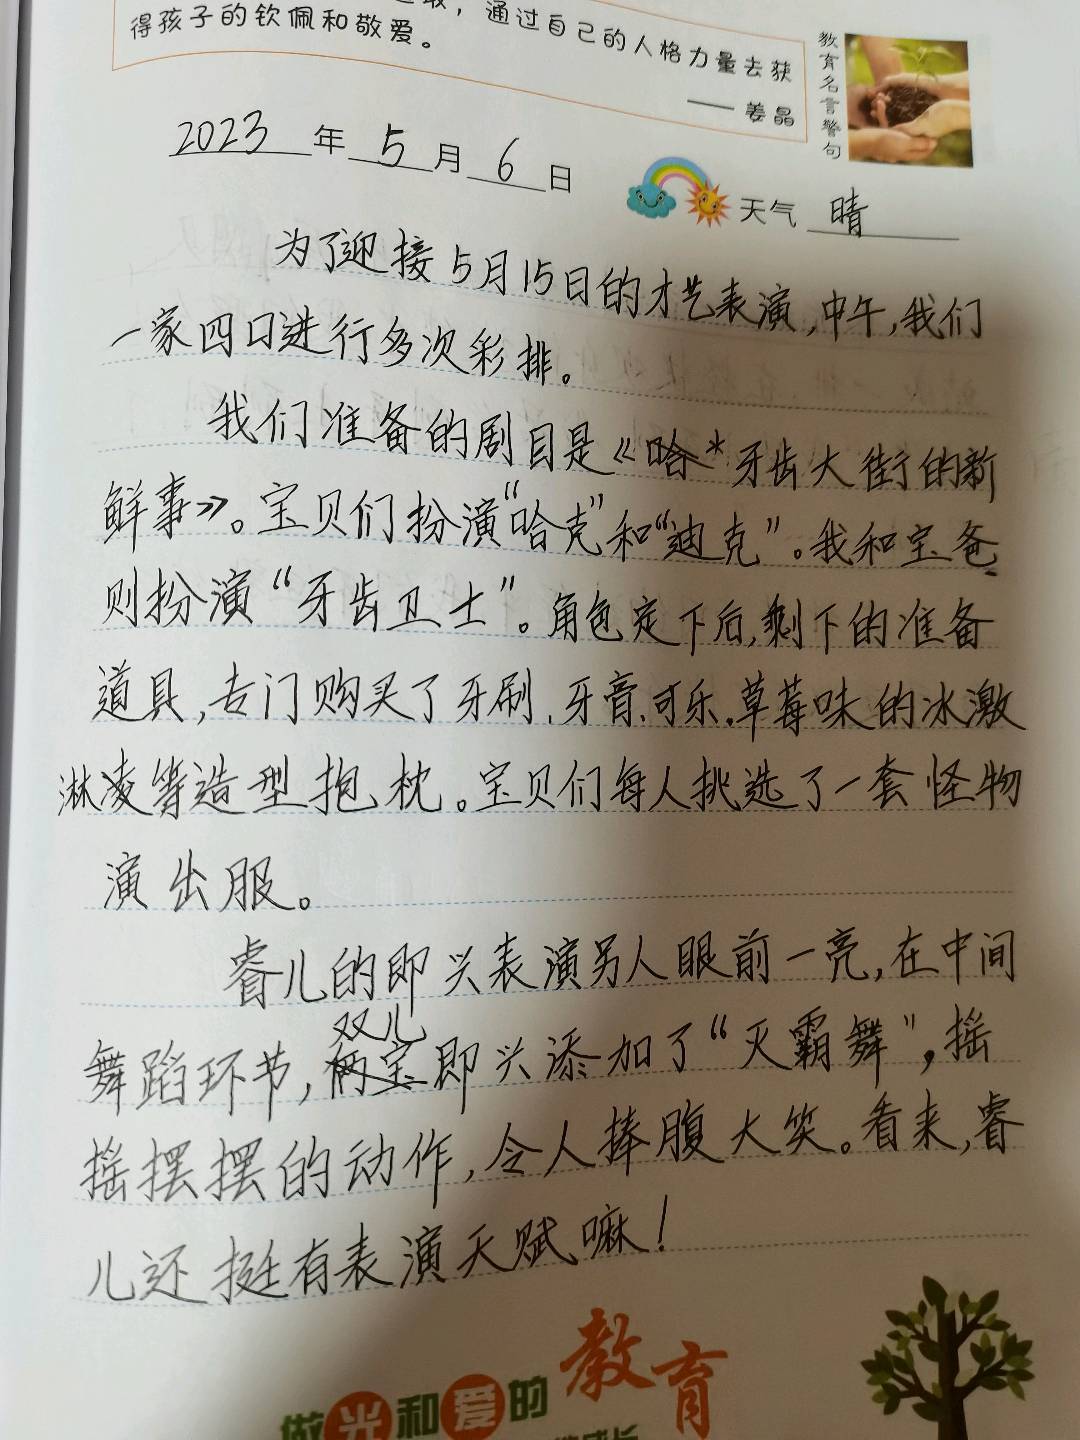 通过自己的人格力量去获
得孩子的钦佩和敬爱。
——姜晶
教育名言警句
2023年5月6日 天气 晴
为了迎接5月15日的才艺表演,中午,我们
一家四口进行多次彩排。
我们准备的剧目是《牙齿大街的新
鲜事》。宝贝们扮演“哈克”和“迪克”。我和宝爸
则扮演“牙齿卫士”。角色定下后,剩下的准备
道具,专门购买了牙刷、牙膏、可乐、草莓味的冰激
淋凌等造型抱枕。宝贝们每人挑选了一套怪物
演出服。
睿儿的即兴表演另人眼前一亮,在中间
舞蹈环节,双儿即兴添加了“灭霸舞”,摇
摇摆摆的动作,令人捧腹大笑。看来,睿
儿还挺有表演天赋嘛!
做光和爱的教育